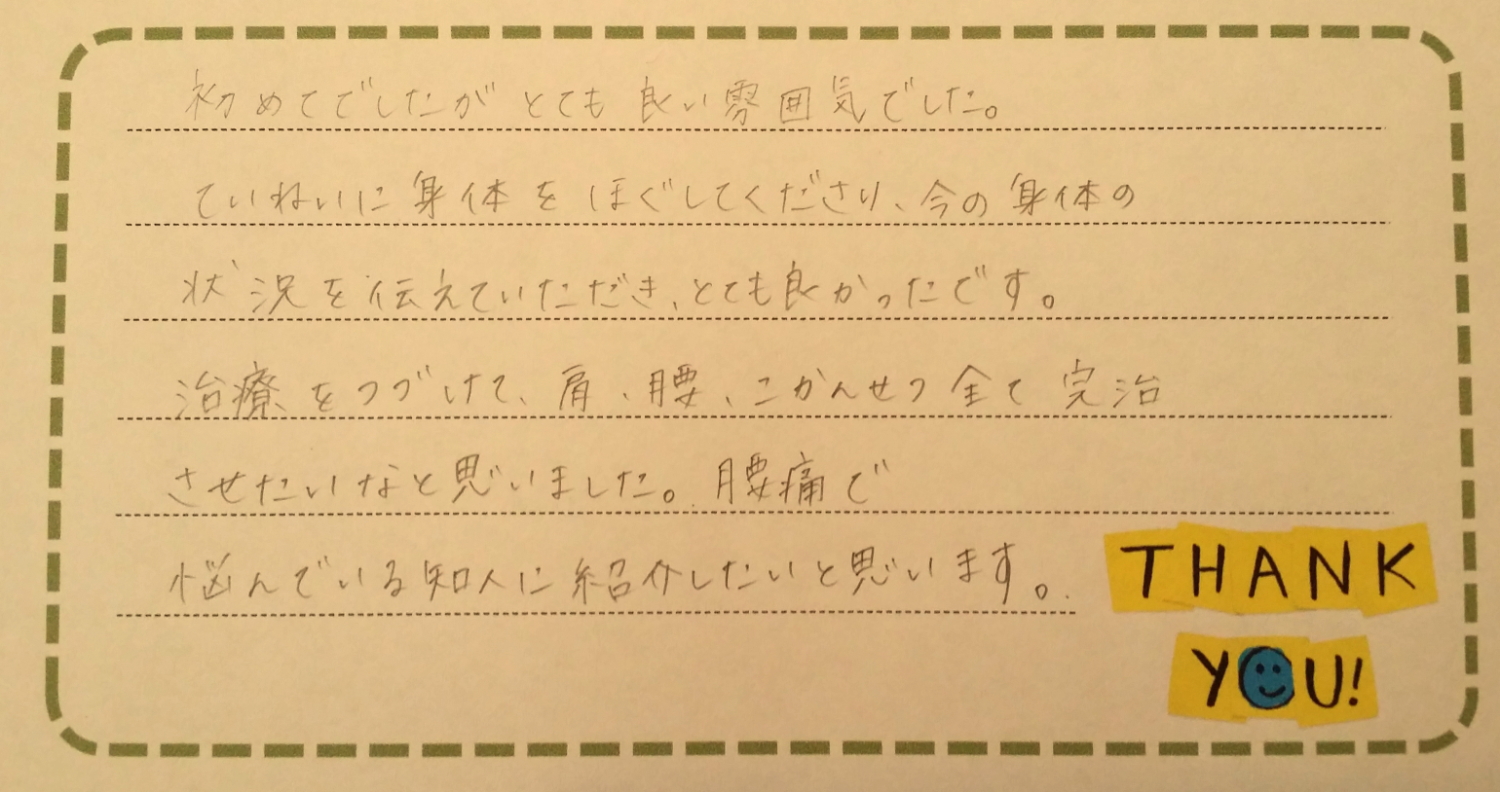 初めてでしたが とても 良い雰囲気でした。
ていねいに 身体を ほぐしてくださり、今の身体の
状況を伝えていただき、とても良かったです。
治療をつづけて、肩、腰、こかんせつ 全て 完治
させたいなと思いました。腰痛で
悩んでいる知人に紹介したいと思います。
THANK
YOU!